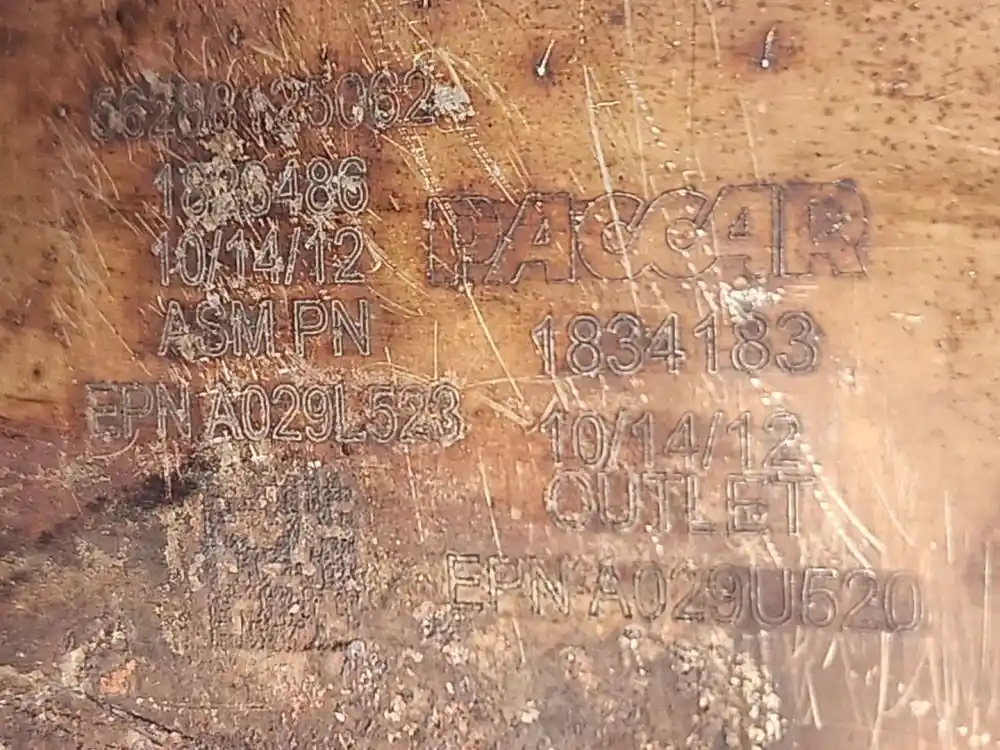 10/14/12
ASM PN
EPN A029L523
PACCAR
1834183
10/14/12
OUTLET
EPN A029U520